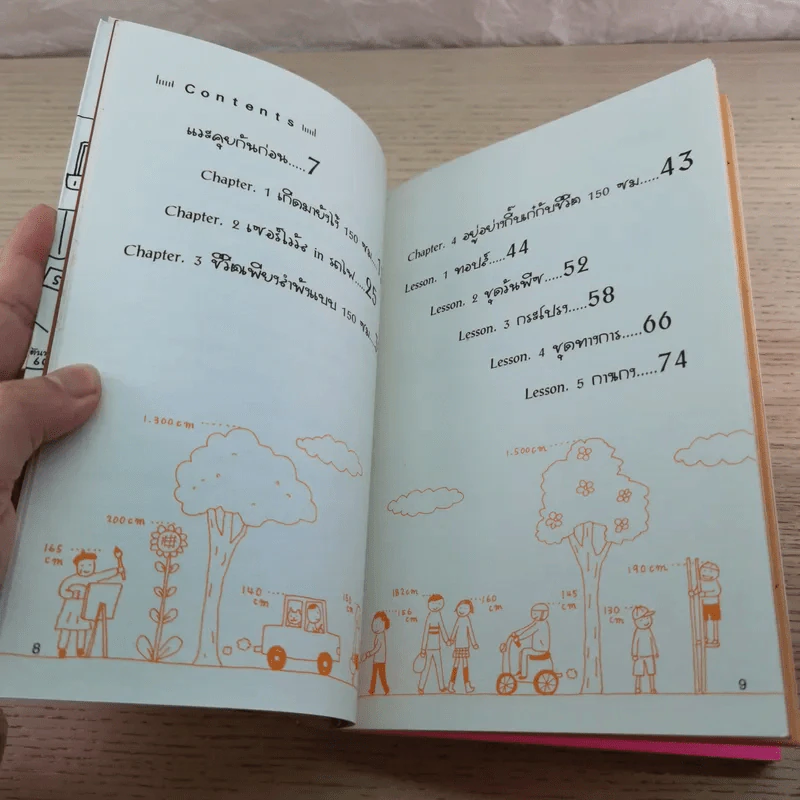 Contents
แวะคุยกันก่อน.....7
Chapter. 1 เกิดมายังไง้ 150 ซม...1
Chapter. 2 เซอร์ไวว์ส in รถไฟ....25
Chapter. 3 ชีวิตเพียงลำพังแบบ 150 ซม...
1.300cm
200cm
165 cm
140 cm
8
Chapter. 4 อยู่อย่างกิ๊บเก๋กับชีวิต 150 ซม.....43
Lesson. 1 ทอปส์.....44
Lesson. 2 ชุดวันพีซ.....52
Lesson. 3 กระโปรง.....58
Lesson. 4 ชุดทางการ.....66
Lesson. 5 กางเกง.....74
1.500cm
182cm
156 cm
160 cm
145 cm
130 cm
190cm
9